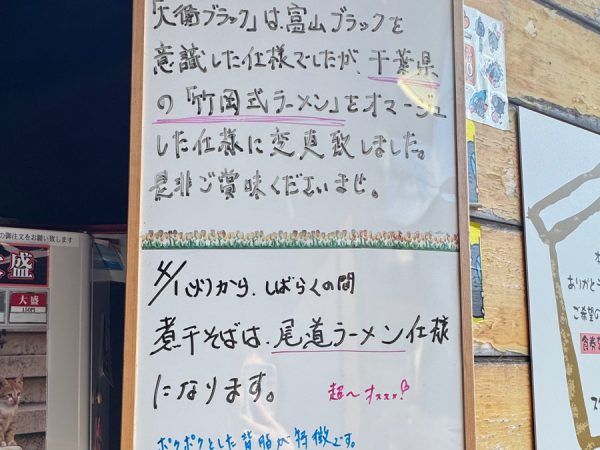 「大衡ブラック」は、富山ブラックを
意識した仕様でしたが、千葉県
の「竹岡式ラーメン」をオマージュ
した仕様に変更致しました。
是非ご賞味くださいませ。
4/1(火)から、しばらくの間
煮干そばは、尾道ラーメン仕様
になります。
超〜オススメ!
ポクポクとした背脂が特徴です。
の御注文をお願い致します
盛
大盛
150円
ありがと
ご希望の
食券